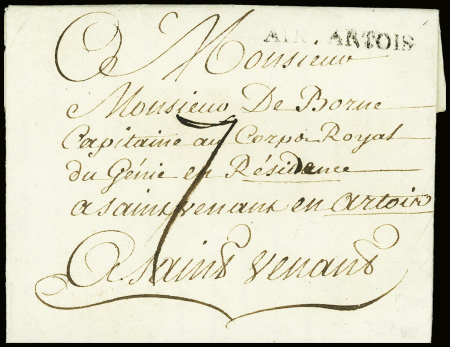 AIR . ARTOIS
A Monsieur
Monsieur De Borne
Capitaine au Corps Royal
du Génie en Résidence
a saint venant en artois
7
A saint venant